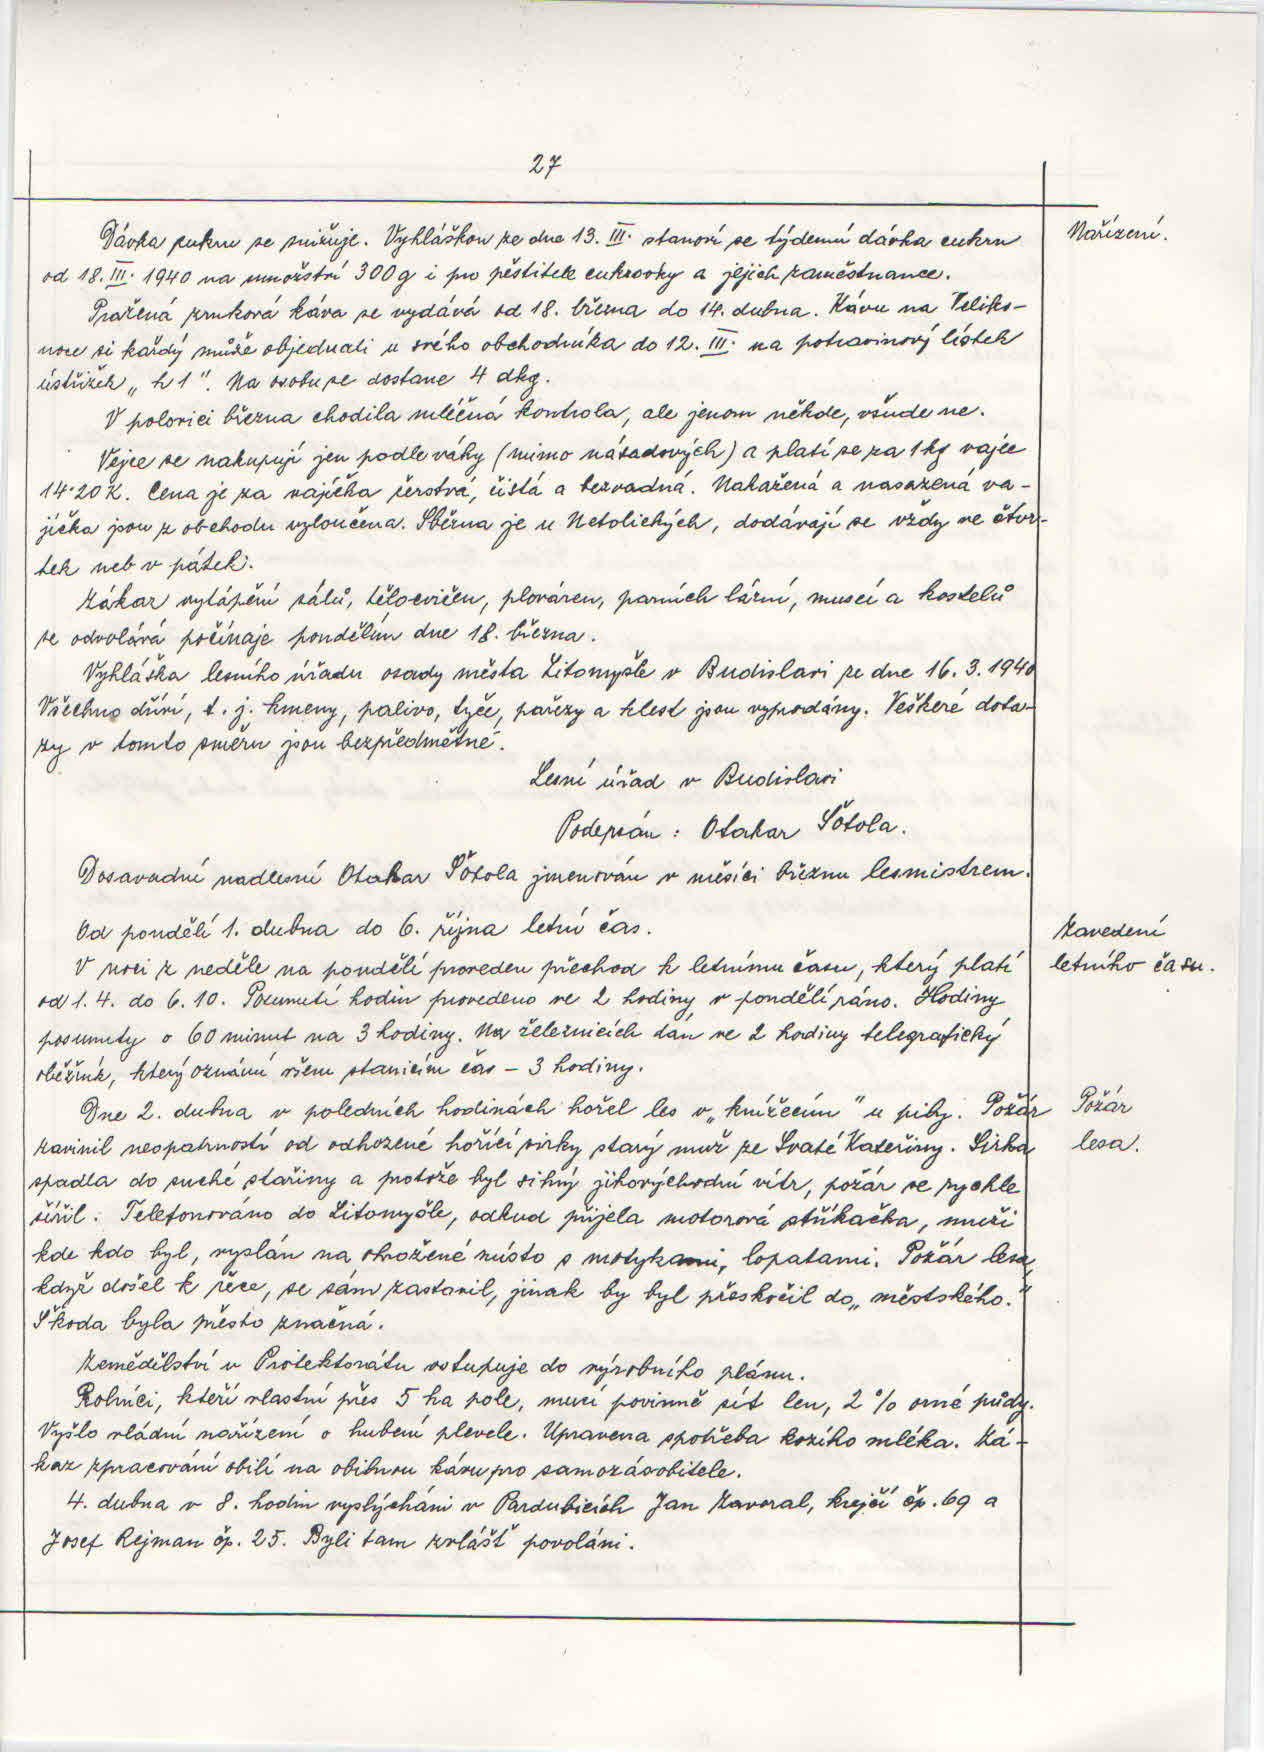 27
Dávka cukru se snižuje. Vyhláškou ze dne 13. III. stanoví se týdenní dávka cukru
Nařízení.
od 18. III. 1940 na množství 300 g i pro pěstitele cukrovky a jejich zaměstnance.
Pražená zrnková káva se vydává od 18. března do 14. dubna. Kávu na Veliko-
noce si každý může objednati u svého obchodníka do 12. III. na potravinový lístek
ústřižek „h 1“. Na osobu se dostane 4 dkg.
V polovici března chodila mléčná kontrola, ale jenom někde, všude ne.
Vejce se nakupují jen podle váhy (mimo násadových) a platí se za 1 kg vajec
14·20 K. Cena je za vajíčka čerstvá, čistá a bezvadná. Nakažená a nasazená va-
jíčka jsou z obchodu vyloučena. Sběrna je u Netolických, dodávají se vždy ve čtvr-
tek neb v pátek.
Zákaz vytápění sálů, tělocvičen, plováren, parních lázní, museí a kostelů
se odvolává počínaje pondělím dne 18. března.
Vyhláška lesního úřadu osady města Litomyšle v Budislavi ze dne 16. 3. 1940
Všechno dříví, t. j. kmeny, palivo, tyče, pařezy a klest jsou vyprodány. Veškeré dota-
zy v tomto směru jsou bezpředmětné.
Lesní úřad v Budislavi
Podepsán: Otakar Šötola.
Dosavadní nadlesní Otakar Šötola jmenován v měsíci březnu lesmistrem.
Od pondělí 1. dubna do 6. října letní čas.
Zavedení
V noci z neděle na pondělí proveden přechod k letnímu času, který platí
letního času.
od 1. 4. do 6. 10. Posunutí hodin provedeno ve 2 hodiny v pondělí ráno. Hodiny
posunuty o 60 minut na 3 hodiny. Na železnicích dán ve 2 hodiny telegrafický
oběžník, který oznámí všem stanicím čas – 3 hodiny.
Dne 2. dubna v poledních hodinách hořel les v „knížecím“ u pily. Požár
Požár
zavinil neopatrností od odhozené hořící sirky starý muž ze Svaté Kateřiny. Sirka
lesa.
spadla do suché stařiny a protože byl silný jihovýchodní vítr, požár se rychle
šířil. Telefonováno do Litomyšle, odkud přijela motorová stříkačka, muži
kde kdo byl, vyslán na ohrožené místo s motykami, lopatami. Požár lesa,
když došel k řece, se sám zastavil, jinak by byl přeskočil do „městského.“
Škoda byla přesto značná.
Zemědělství v Protektorátu vstupuje do výrobního plánu.
Rolníci, kteří vlastní přes 5 ha pole, musí povinně sít len, 2 % orné půdy.
Vyšlo vládní nařízení o hubení plevele. Upravena spotřeba kozího mléka. Zá-
kaz zpracování obilí na obilnou kávu pro samozásobitele.
4. dubna v 8. hodin vyslýcháni v Pardubicích Jan Zavoral, krejčí čp. 69 a
Josef Rejman čp. 25. Byli tam zvlášť povoláni.